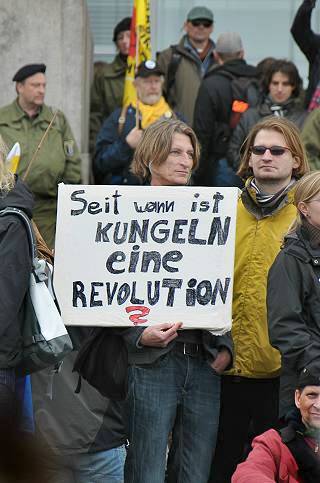 Seit wann ist
KUNGELN
eine
REVOLUTION
?